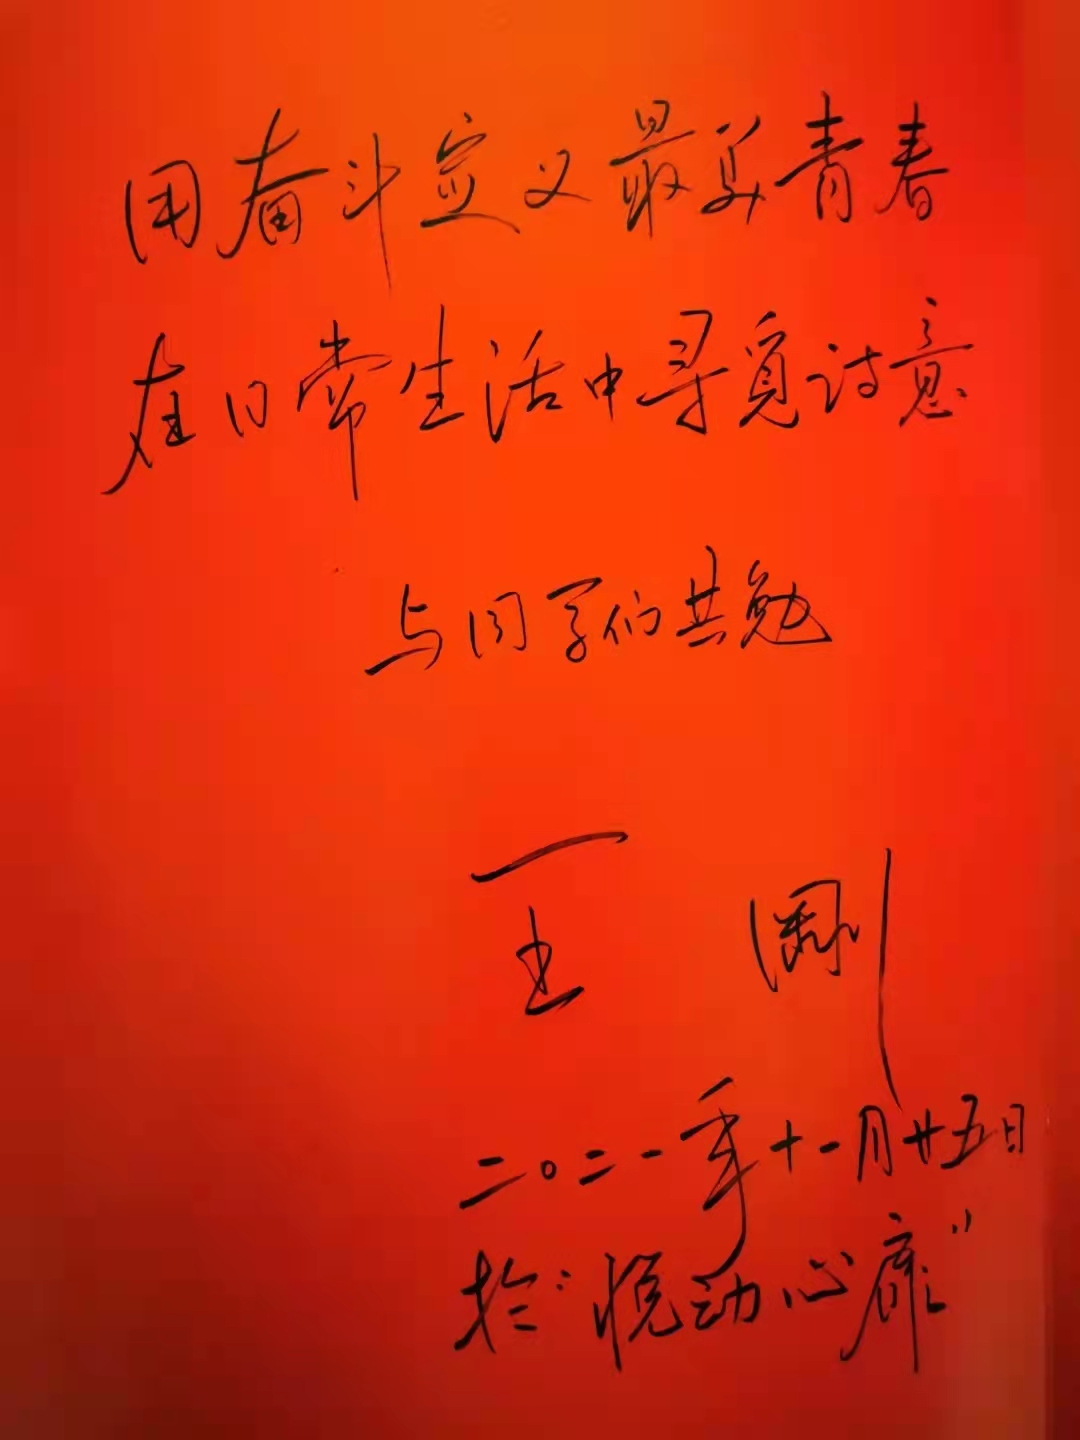 用奋斗定义最美青春
在日常生活中寻觅诗意
与同学们共勉
王刚
二〇二一年十一月廿五日
于"悦动心扉"